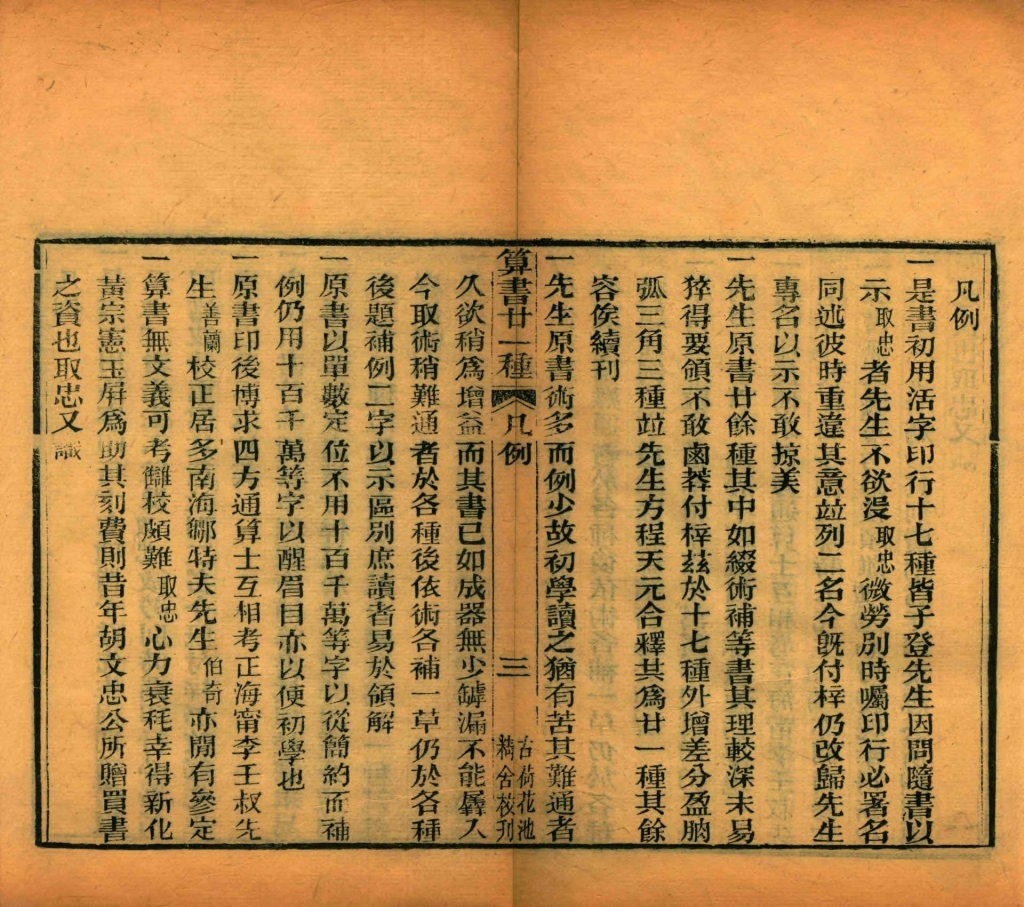 凡例
一是書初用活字印行十七種皆子登先生因問隨書以
示取忠者先生不欲沒取忠微勞別時囑印行必署名
同述彼時重違其意竝列二名今旣付梓仍改歸先生
專名以示不敢掠美
一先生原書廿餘種其中如綴術補等書其理較深未易
猝得要領不敢鹵莽付梓茲於十七種外增差分盈朒
弧三角三種竝先生方程天元合釋共爲廿一種其餘
容俟續刊
一先生原書術多而例少故初學讀之猶有苦其難通者
算書廿一種 凡例 三 古荷花池精舍校刊
久欲稍爲增益而其書已如成器無少罅漏不能羼入
今取術稍難通者於各種後依術各補一草仍於各種
後題補例二字以示區別庶讀者易於領解
一原書以單數定位不用十百千萬等字以從簡約而補
例仍用十百千萬等字以醒眉目亦以便初學也
一原書印後博求四方通算士互相考正海甯李壬叔先
生善蘭校正居多南海鄒特夫先生伯奇亦閒有參定
一算書無文義可考讎校頗難取忠心力衰秏幸得新化
黃宗憲玉屏爲助其刻費則昔年胡文忠公所贈買書
之資也取忠又識